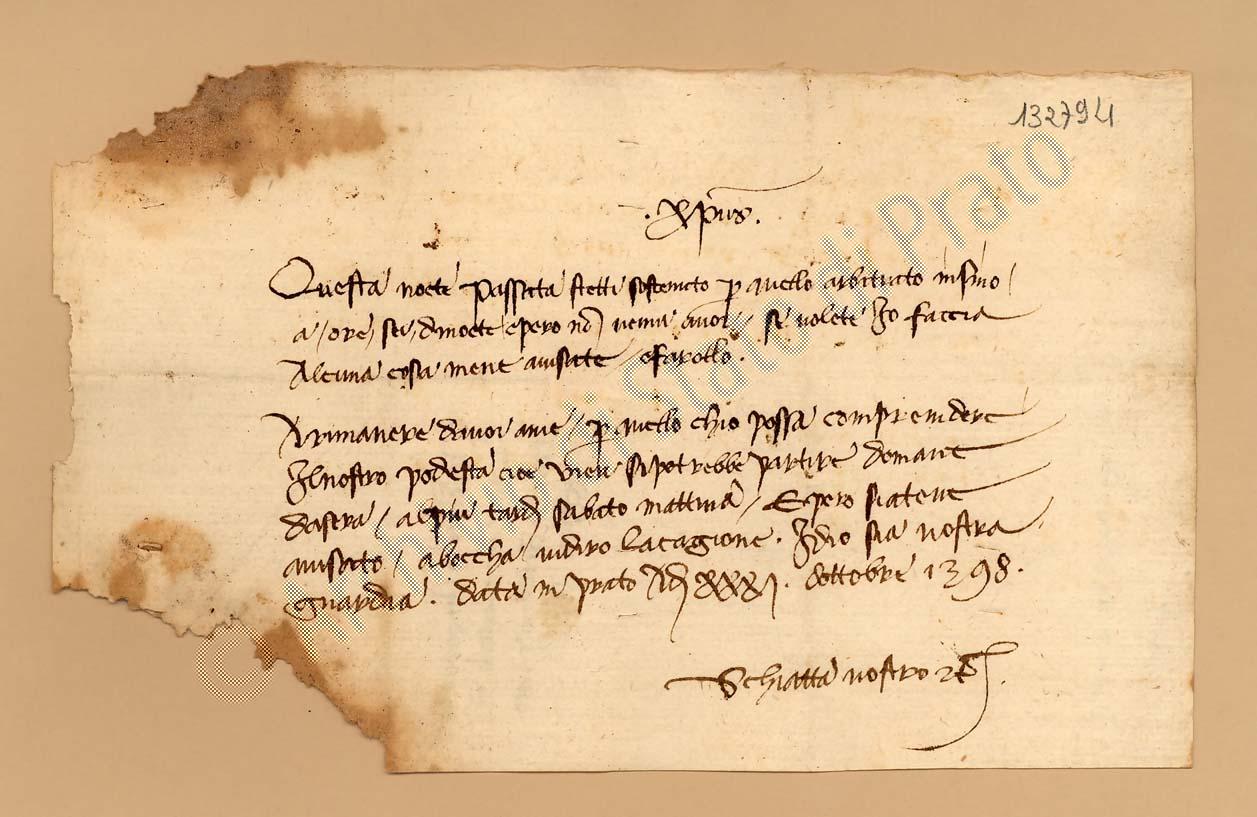 132794
.Xpus.
Questa nocte passata stetti sostenuto p quello arbitrato insino /
a / ore / sei / di nocte / e pero no venni a voi / se volete Io faccia
Alcuna cosa mene avisate / e farollo .
A rimanere da voi a me / p quello chio possa comprendere
Il nostro podesta cioe si potrebbe partire domane
da sera / al piu tardi sabato mattina / E pero siatene
avisato / a boccha vi diro la cagione . Idio sia vostra
guardia . data in prato Adi XXXI . dottobre 1398 .
Schiatta vostro
© Archivio di Stato di Prato